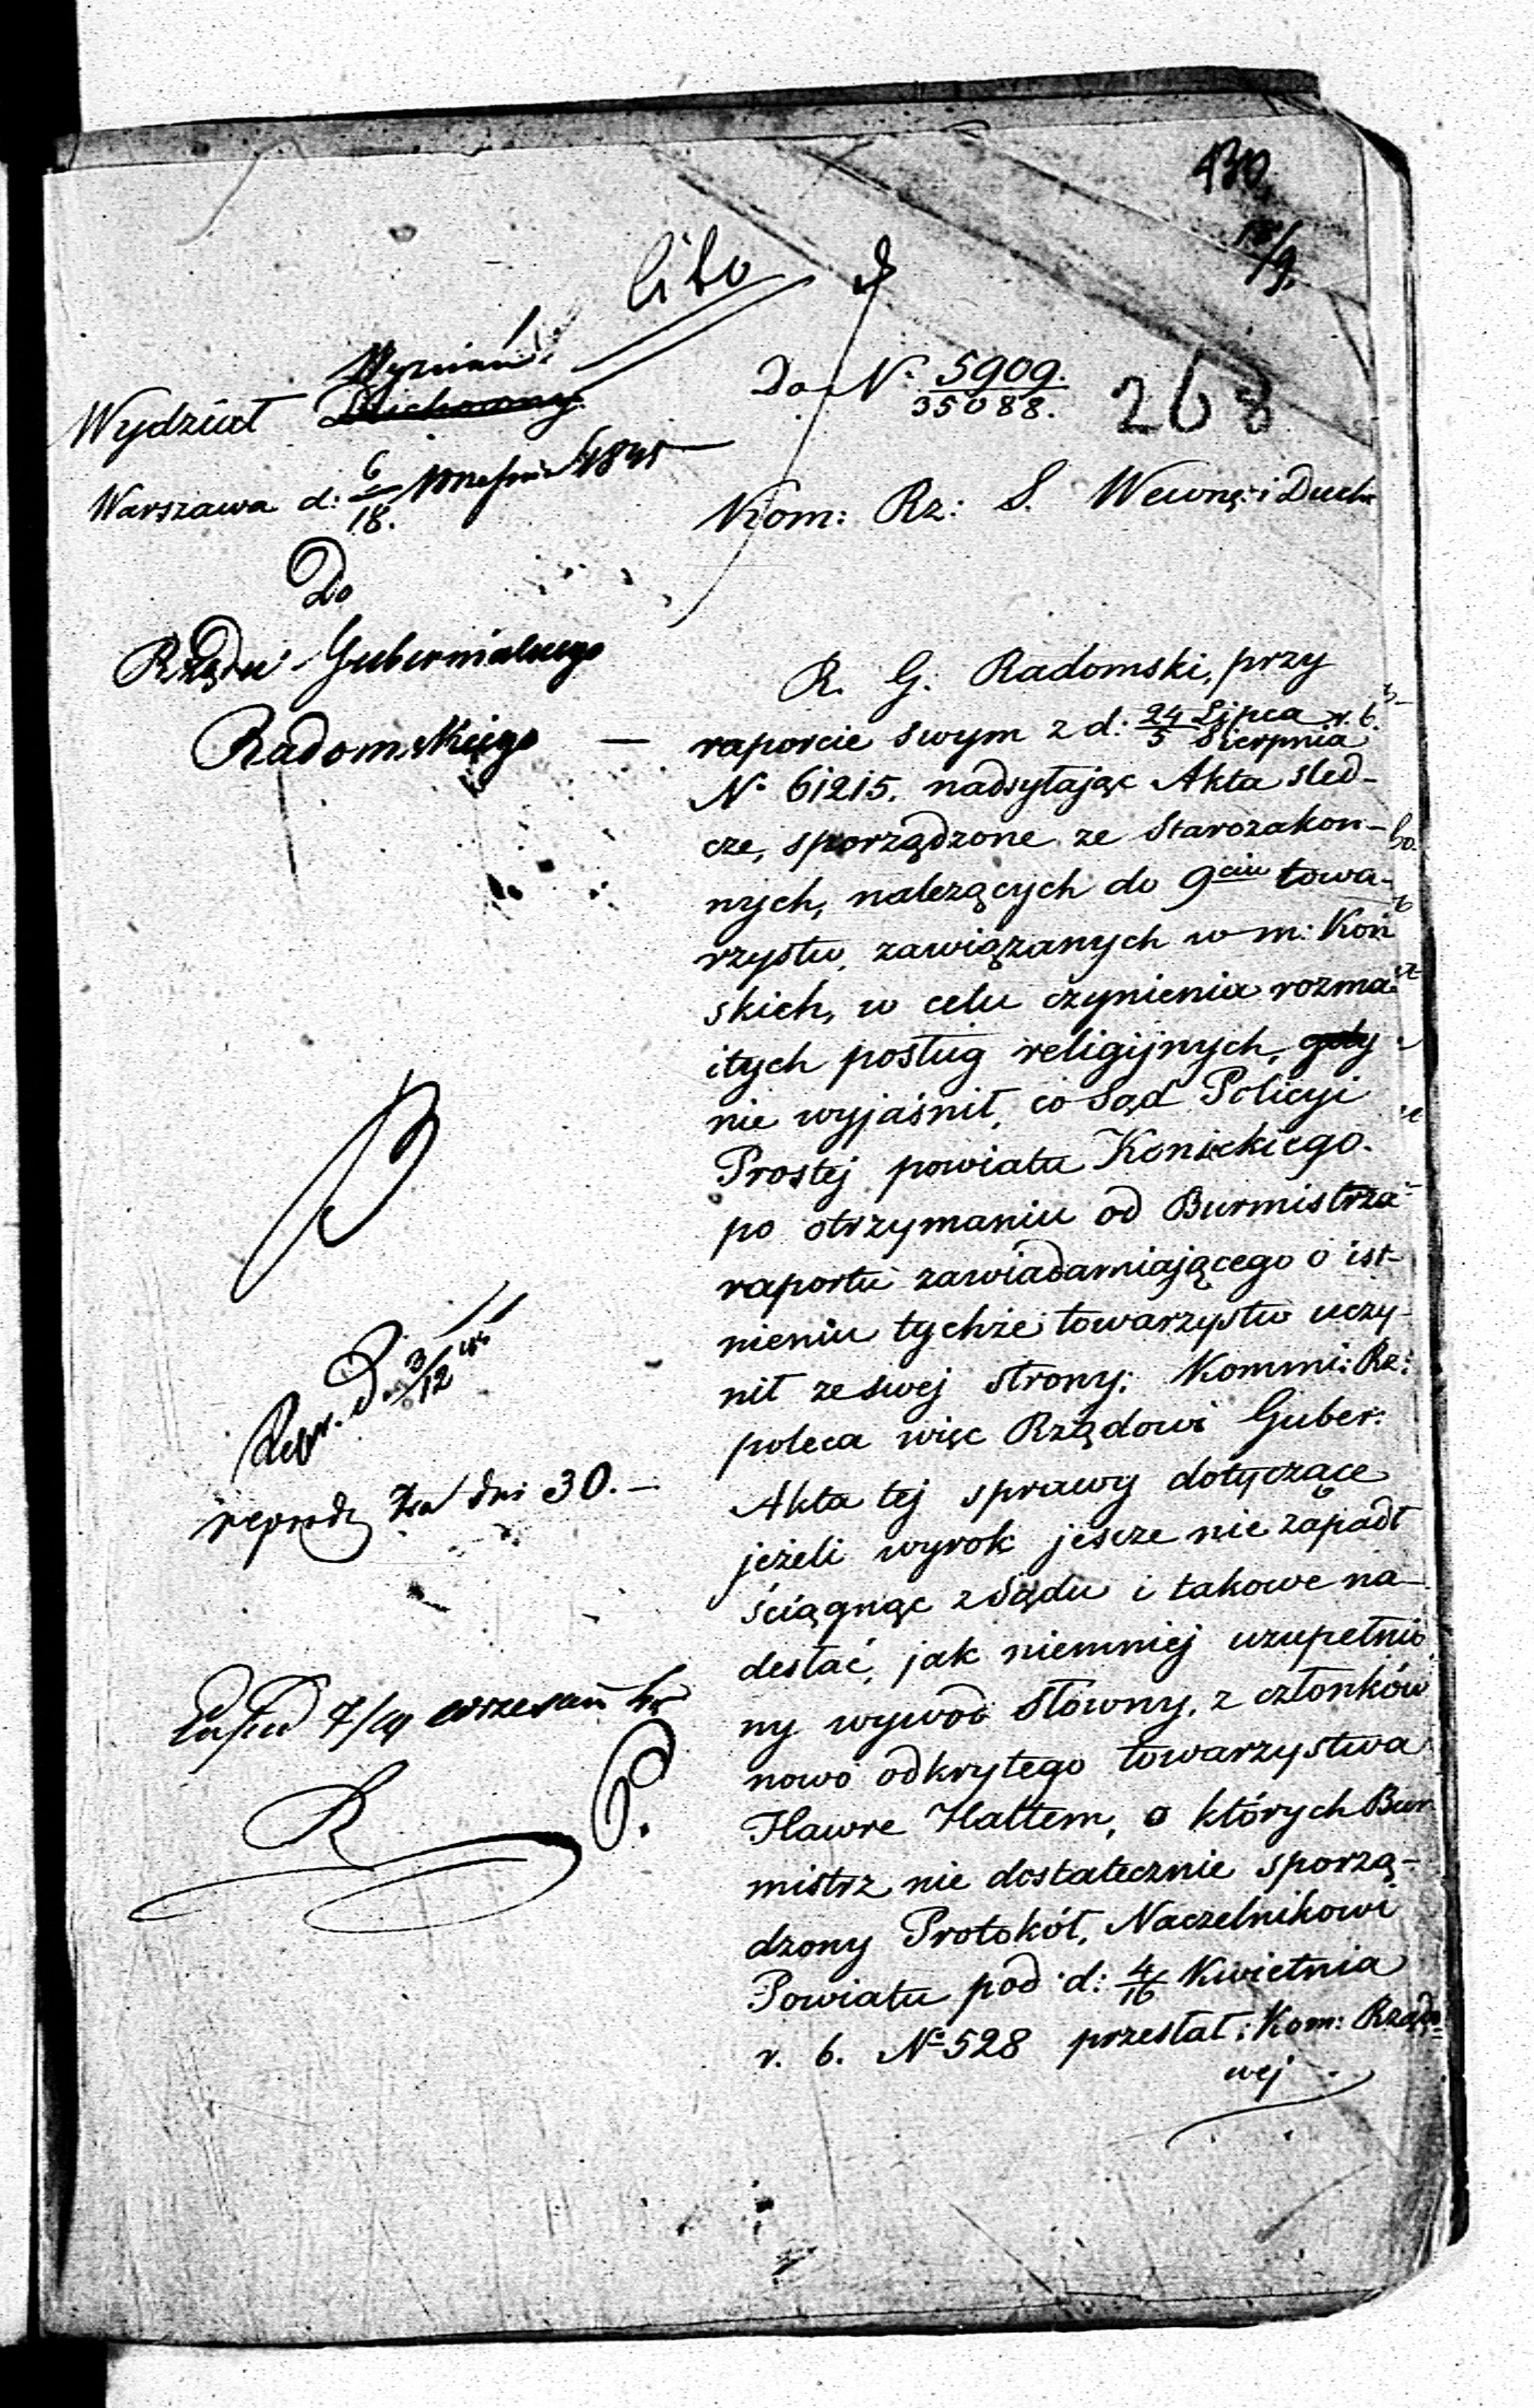 430
18/9
Cito
Wyznań
Wydział Duchowny
Do N: 5909./35088.
268
Warszawa d: 6/18. Września 1845
Kom: Rz: S. Wewnę: i Duch
Do
Rządu Gubernialnego
Radomskiego —
R. G. Radomski, przy
raporcie swym z d: 24 Lipca/5 Sierpnia r. b.
N: 61215. nadsyłając Akta śled-
cze, sporządzone ze Starozakon-
nych, należących do 9ciu towa-
rzystw, zawiązanych w m: Koń
skich, w celu czynienia rozma-
itych posług religijnych, gdy
nie wyjaśnił, co Sąd Policyi
Prostej powiatu Konieckiego.
po otrzymaniu od Burmistrza
raportu zawiadamiającego o ist-
nieniu tychże towarzystw uczy-
nił ze swej strony: Kommi: Rz:
poleca więc Rządowi Guber:
Akta tej sprawy dotyczące
jeżeli wyrok jescze nie zapadł
ściągnąć z Sądu i takowe na-
desłać, jak niemniej uzupełnio
ny wywód Słowny, z członków
nowo odkrytego towarzystwa
Hawre Hallem, o których Bur
mistrz nie dostatecznie sporzą-
dzony Protokół, Naczelnikowi
Powiatu pod d: 4/16 Kwietnia
r. b. N: 528 przesłał; Kom: Rządo-
wej
d. 3/12
za dni 30.—
7/19 wrześn